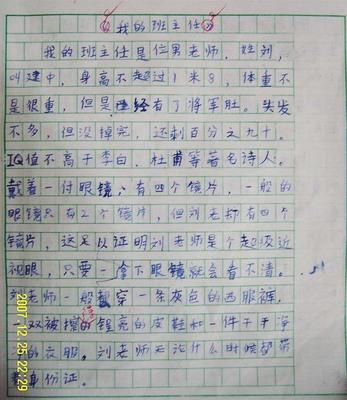 我的班主任
我的班主任是位男老师，姓刘，
叫建中，身高不超过1米8，体重不
是很重，但是已经有了将军肚。头发
不多，但没掉完，还剩百分之九十。
IQ值不高于李白、杜甫等著名诗人。
戴着一付眼镜，有四个镜片，一般的
眼镜只有2个镜片，但刘老师有四个
镜片，这足以证明刘老师是个超级近
视眼，只要一拿下眼镜就会看不清。
刘老师一般穿一条灰色的西服裤，
一双被擦的锃亮的皮鞋和一件干干净
净的衣服。刘老师无论什么时候都带
着身份证。
2007.12.25 22:29